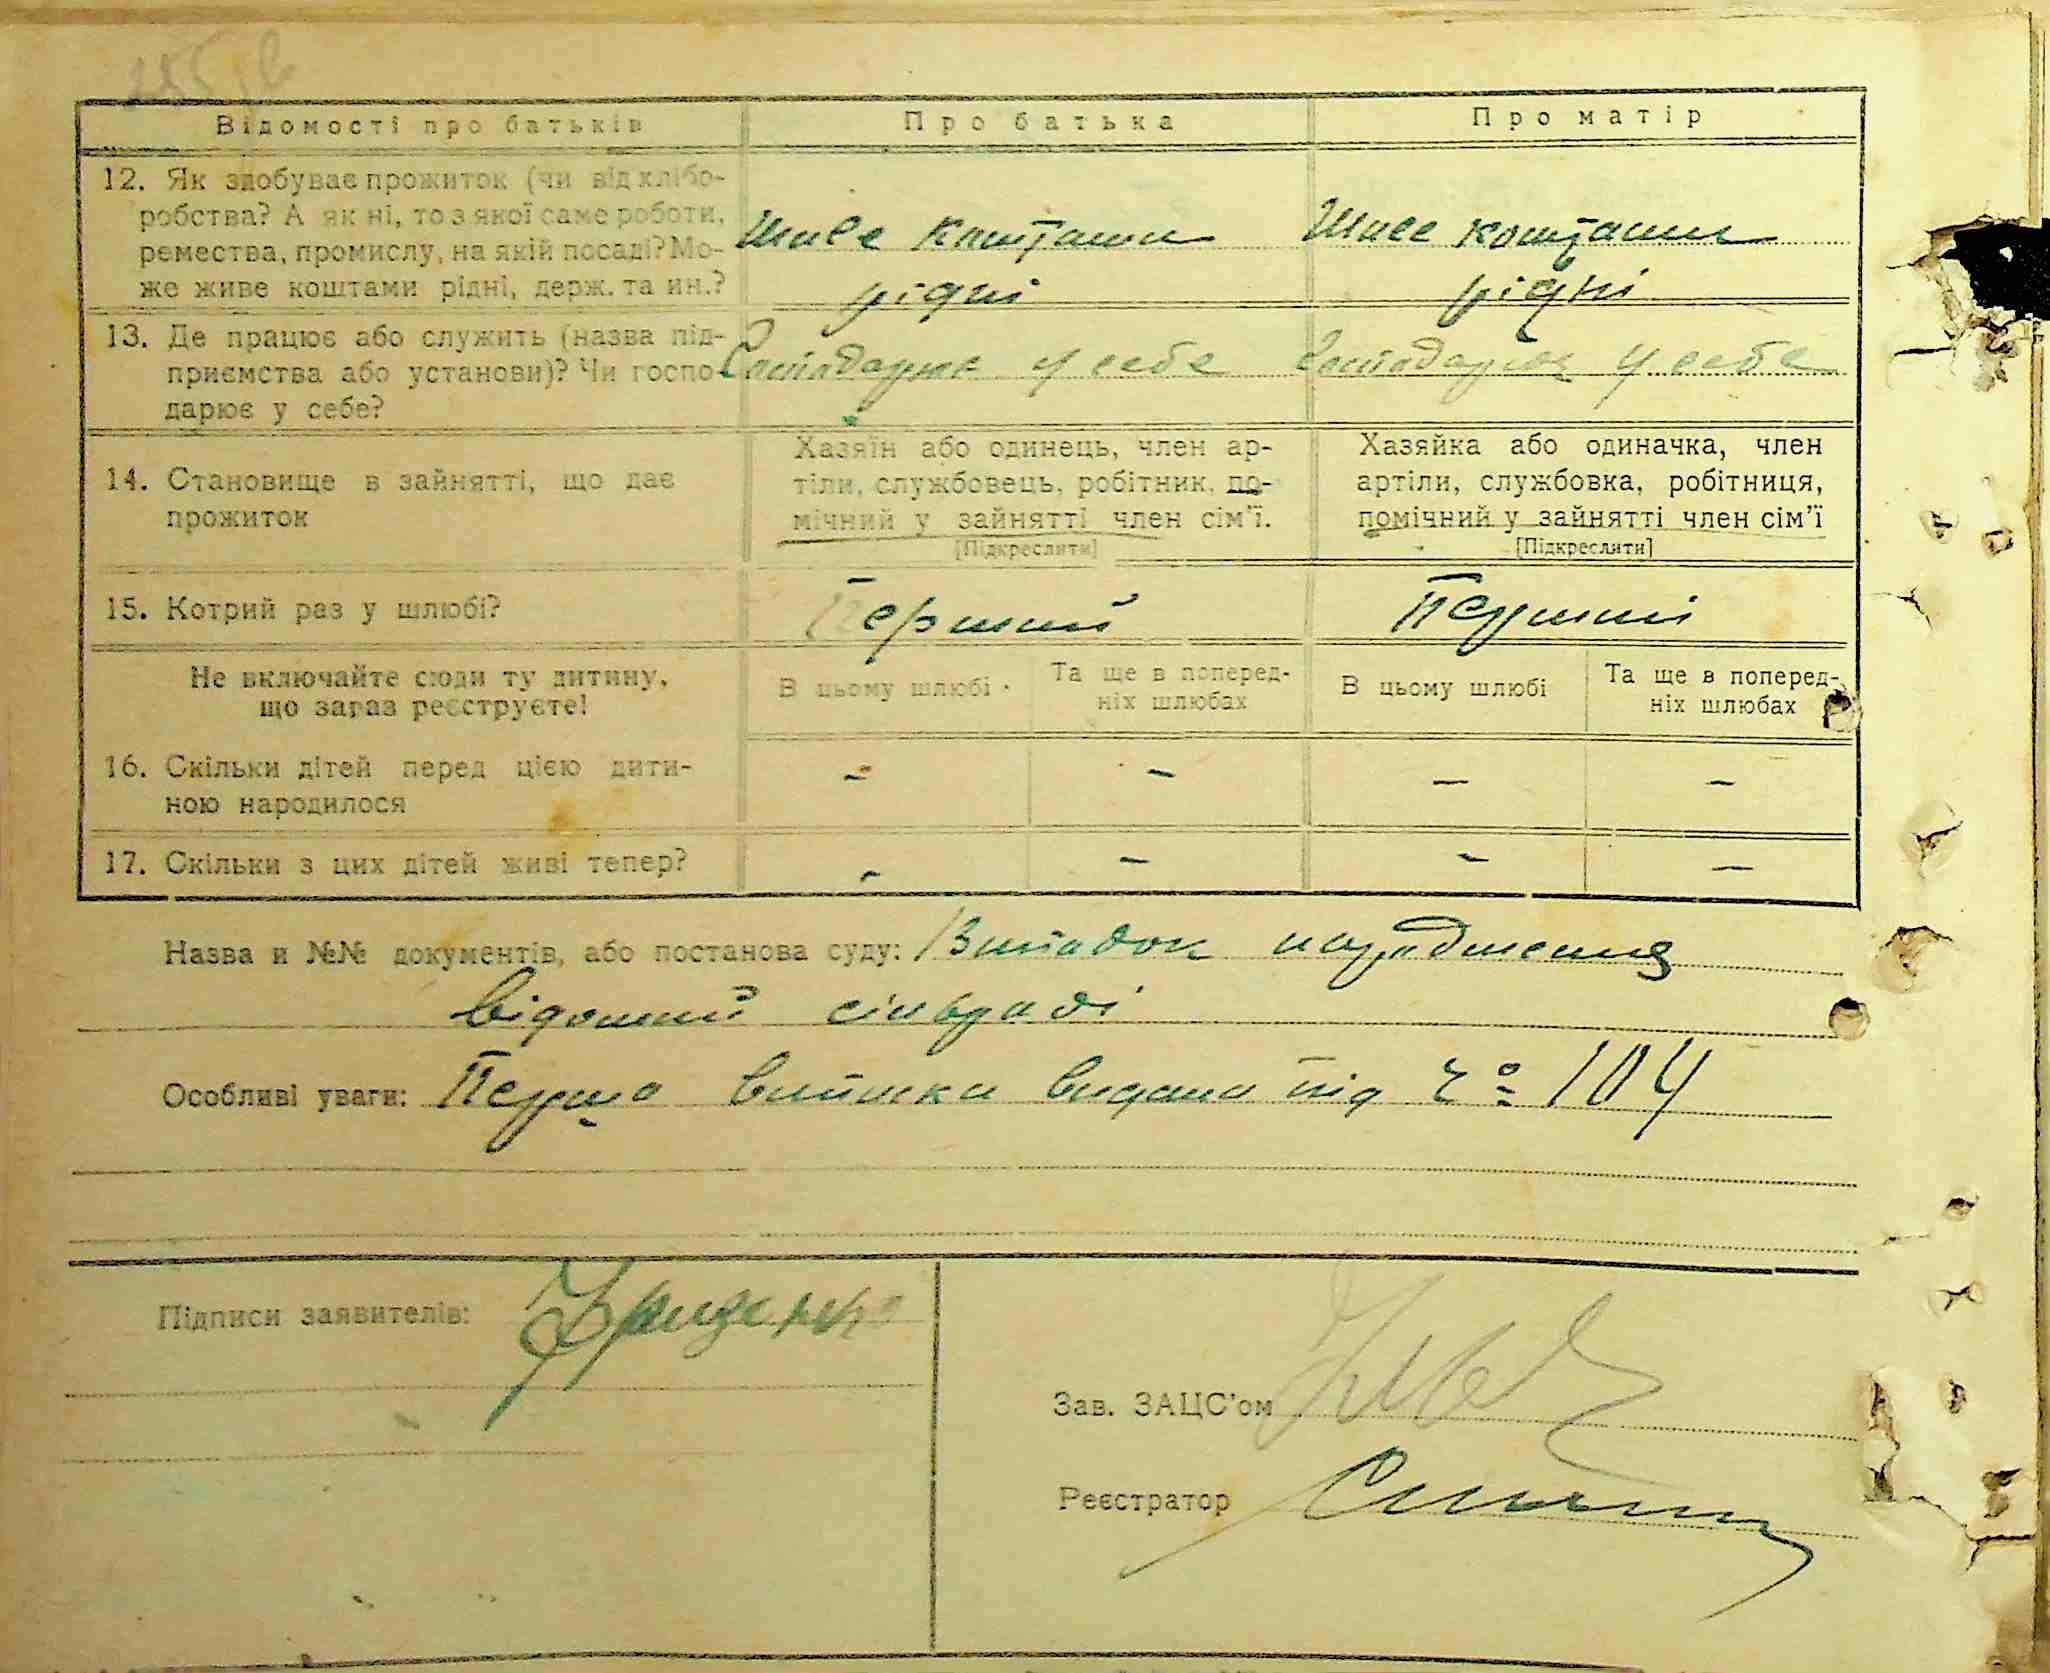 Відомості про батьків Про батька Про матір
12. Як здобуває прожиток (чи від хлібо-
робства? А як ні, то з якої саме роботи,
ремества, промислу, на якій посаді? Мо-
же живе коштами рідні, держ. та ин.?
Живе коштами Живе коштами
рідні рідні
13. Де працює або служить (назва під-
приємства або установи)? Чи госпо-
дарює у себе?
Господарює у себе Господарює у себе
14. Становище в зайнятті, що дає
прожиток
Хазяїн або одинець, член ар-
тіли, службовець, робітник, по-
мічний у зайнятті член сім'ї.
[Підкреслити]
Хазяйка або одиначка, член
артіли, службовка, робітниця,
помічний у зайнятті член сім'ї
[Підкреслити]
15. Котрий раз у шлюбі? Перший Перший
Не включайте сюди ту дитину,
що зараз реєструєте!
В цьому шлюбі
Та ще в поперед-
ніх шлюбах
В цьому шлюбі
Та ще в поперед-
ніх шлюбах
16. Скільки дітей перед цією дити-
ною народилося
- - - -
17. Скільки з цих дітей живі тепер?
- - - -
Назва и №№ документів, або постанова суду: Випадок народження
відомий сільраді
Особливі уваги: Перша виписка видана під ч° 104
Підписи заявителів:
Зав. ЗАЦС'ом
Реєстратор